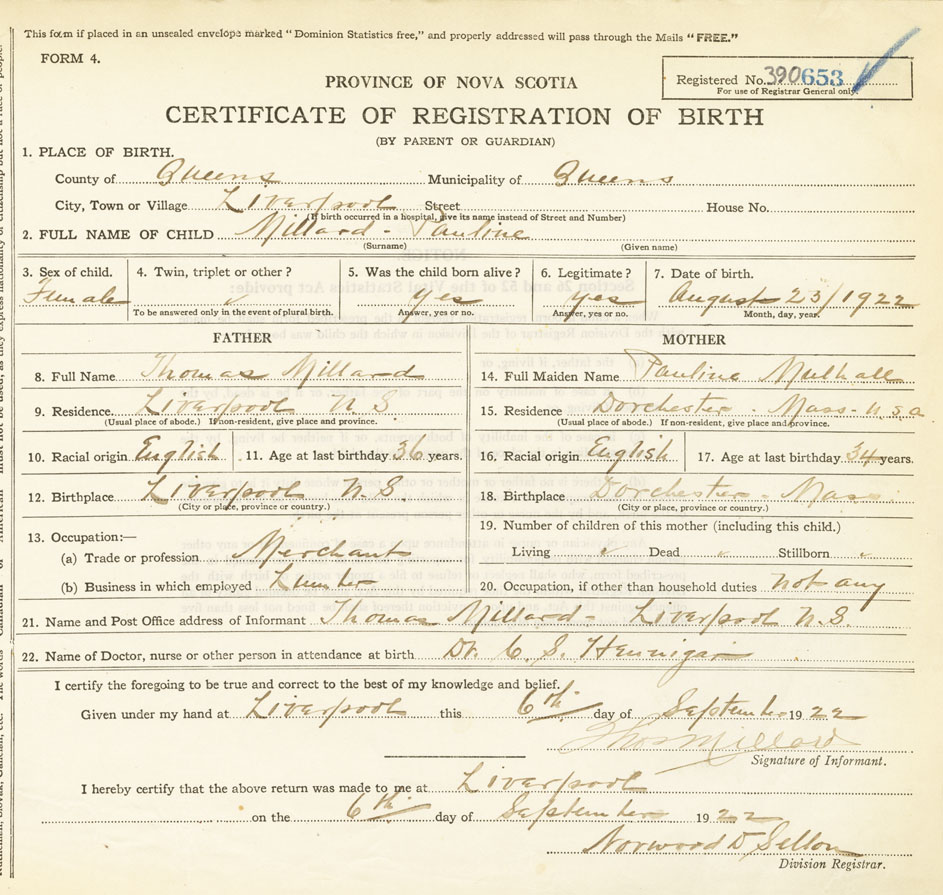 This form if placed in an unsealed envelope marked "Dominion Statistics free," and properly addressed will pass through the Mails "FREE."
FORM 4.
Registered No. 390653
For use of Registrar General only.
PROVINCE OF NOVA SCOTIA
CERTIFICATE OF REGISTRATION OF BIRTH
(BY PARENT OR GUARDIAN)
1. PLACE OF BIRTH.
County of Queens Municipality of Queens
City, Town or Village Liverpool Street House No.
(If birth occurred in a hospital, give its name instead of Street and Number)
2. FULL NAME OF CHILD Millard - Pauline
(Surname) (Given name)
3. Sex of child. 4. Twin, triplet or other? 5. Was the child born alive? 6. Legitimate? 7. Date of birth.
Female yes yes August 23/1922
To be answered only in the event of plural birth. Answer, yes or no. Answer, yes or no. Month, day, year.
FATHER
8. Full Name Thomas Millard
9. Residence. Liverpool N.S.
(Usual place of abode.) If non-resident, give place and province.
10. Racial origin English 11. Age at last birthday 36 years.
12. Birthplace Liverpool N.S.
(City or place, province or country.)
13. Occupation:—
(a) Trade or profession Merchant
(b) Business in which employed Lumber
MOTHER
14. Full Maiden Name Pauline Mulhall
15. Residence Dorchester - Mass - U.S.A
(Usual place of abode.) If non-resident, give place and province.
16. Racial origin English 17. Age at last birthday 34 years.
18. Birthplace Dorchester - Mass
(City or place, province or country.)
19. Number of children of this mother (including this child.)
Living Dead Stillborn
20. Occupation, if other than household duties not any
21. Name and Post Office address of Informant Thomas Millard - Liverpool N.S.
22. Name of Doctor, nurse or other person in attendance at birth Dr. C. S. Hennigar
I certify the foregoing to be true and correct to the best of my knowledge and belief.
Given under my hand at Liverpool this 6th day of September 1922
Thos Millard
Signature of Informant.
I hereby certify that the above return was made to me at Liverpool
on the 6th day of September 1922
Norwood D Sellon
Division Registrar.